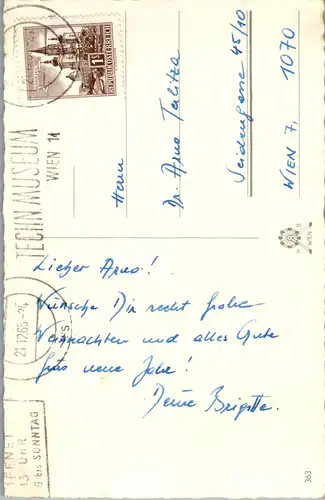 REPUBLIK ÖSTERREICH
TECHN. MUSEUM
WIEN 14
21.12.65
ÖFFNET
13 UHR
G bis SONNTAG
Herrn
Dr. Arno Terlitza
Seidengasse 45/10
WIEN 7, 1070
WIEN
Lieber Arno!
Wünsche Dir recht frohe
Weihnachten und alles Gute
fürs neue Jahr!
Deine Brigitte.
363